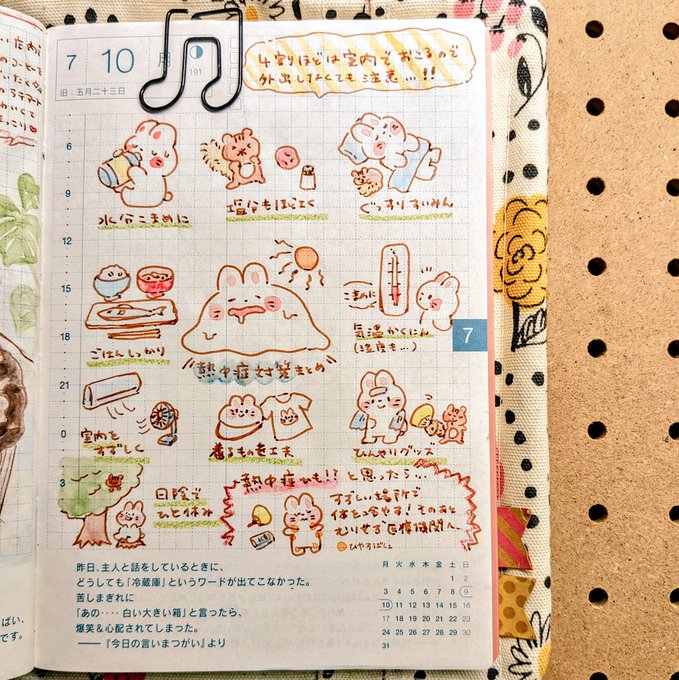 7 10 月
191
旧：五月二十三日
4割ほどは室内でおこるので
外出しなくても注意…!!
6
9
12
15
18
21
0
3
水分こまめに
塩分もほどよく
ぐっすりすいみん
ごはんしっかり
熱中症対策まとめ
こまめに
気温かくにん
(湿度も…)
7
室内を
すずしく
着るものも工夫
ひんやりグッズ
日陰で
ひと休み
熱中症かも!!と思ったら…
すずしい場所で
体を冷やす! そのあと
むりせず医療機関へ
昨日、主人と話をしているときに、
どうしても「冷蔵庫」というワードが出てこなかった。
苦しまぎれに
「あの‥‥白い大きい箱」と言ったら、
爆笑＆心配されてしまった。
——『今日の言いまつがい』より
月 火 水 木 金 土 日
1 2
3 4 5 6 7 8 9
10 11 12 13 14 15 16
17 18 19 20 21 22 23
24 25 26 27 28 29 30
31